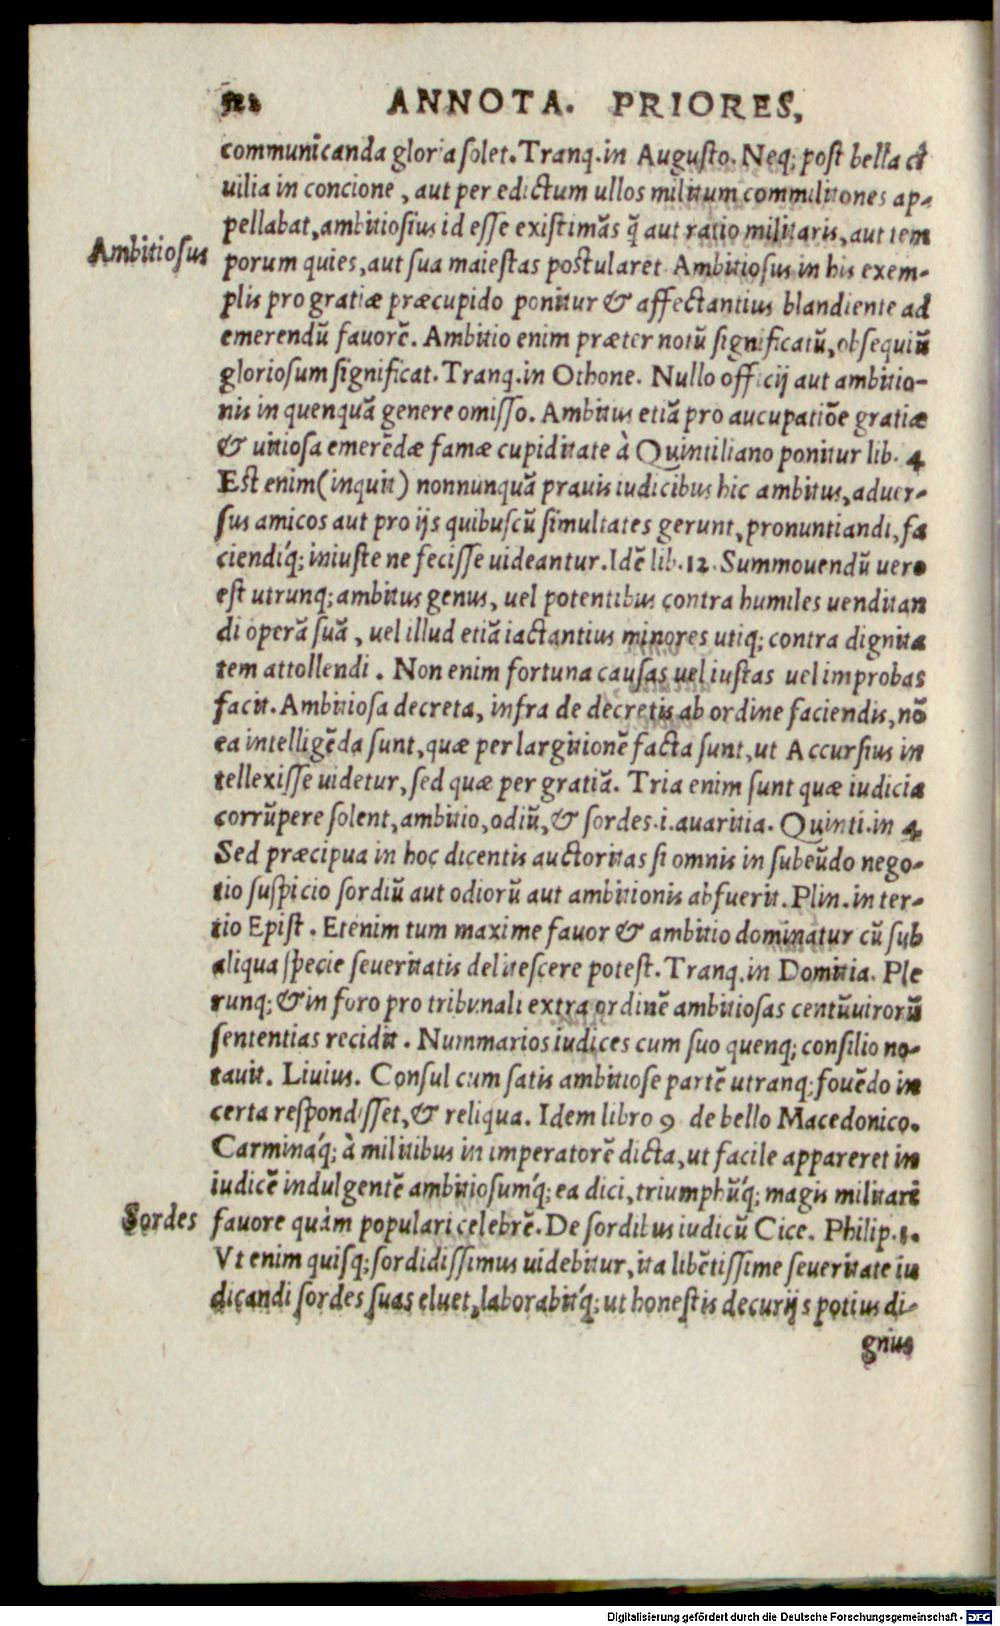 ANNOTA. PRIORES,
communicanda gloria solet. Tranq. in Augusto. Neq; post bella ci
uilia in concione, aut per edictum ullos militum commilitones ap-
pellabat, ambitiosius id esse existimãs q̃ aut ratio militaris, aut tem
Ambitiosus
porum quies, aut sua maiestas postularet Ambitiosus in his exem-
plis pro gratiæ præcupido ponitur & affectantius blandiente ad
emerendũ fauorẽ. Ambitio enim præter notũ significatũ, obsequiũ
gloriosum significat. Tranq. in Othone. Nullo officij aut ambitio-
nis in quenquã genere omisso. Ambitus etiã pro aucupatiõe gratiæ
& uitiosa emerẽdæ famæ cupiditate à Quintiliano ponitur lib. 4
Est enim (inquit) nonnunquã prauis iudicibus hic ambitus, aduer-
sus amicos aut pro ijs quibuscũ simultates gerunt, pronuntiandi, fa
ciendiq́; iniuste ne fecisse uideantur. Idẽ lib. 12. Summouendũ uero
est utrunq; ambitus genus, uel potentibus contra humiles uenditan
di operã suã, uel illud etiã iactantius minores utiq; contra dignita
tem attollendi. Non enim fortuna causas uel iustas uel improbas
facit. Ambitiosa decreta, infra de decretis ab ordine faciendis, nõ
ea intelligẽda sunt, quæ per largitionẽ facta sunt, ut Accursius in
tellexisse uidetur, sed quæ per gratiã. Tria enim sunt quæ iudicia
corrũpere solent, ambitio, odiũ, & sordes .i. auaritia. Quinti. in 4
Sed præcipua in hoc dicentis auctoritas si omnis in subeũdo nego-
tio suspicio sordiũ aut odiorũ aut ambitionis abfuerit. Plin. in ter-
tio Epist. Etenim tum maxime fauor & ambitio dominatur cũ sub
aliqua specie seueritatis delitescere potest. Tranq. in Domitia. Ple
runq; & in foro pro tribunali extra ordinẽ ambitiosas centũuirorũ
sententias recidit. Nummarios iudices cum suo quenq; consilio no-
tauit. Liuius. Consul cum satis ambitiose partẽ utranq; fouẽdo in
certa respondisset, & reliqua. Idem libro 9 de bello Macedonico.
Carminaq́; à militibus in imperatorẽ dicta, ut facile appareret in
iudicẽ indulgentẽ ambitiosumq́; ea dici, triumphũq́; magis militari
Sordes
fauore quàm populari celebrẽ. De sordibus iudicũ Cice. Philip. 1.
Vt enim quisq; sordidissimus uidebitur, ita libẽtissime seueritate iu
dicandi sordes suas eluet, laborabitq́; ut honestis decurijs potius di-
gnius
Digitalisierung gefördert durch die Deutsche Forschungsgemeinschaft - DFG